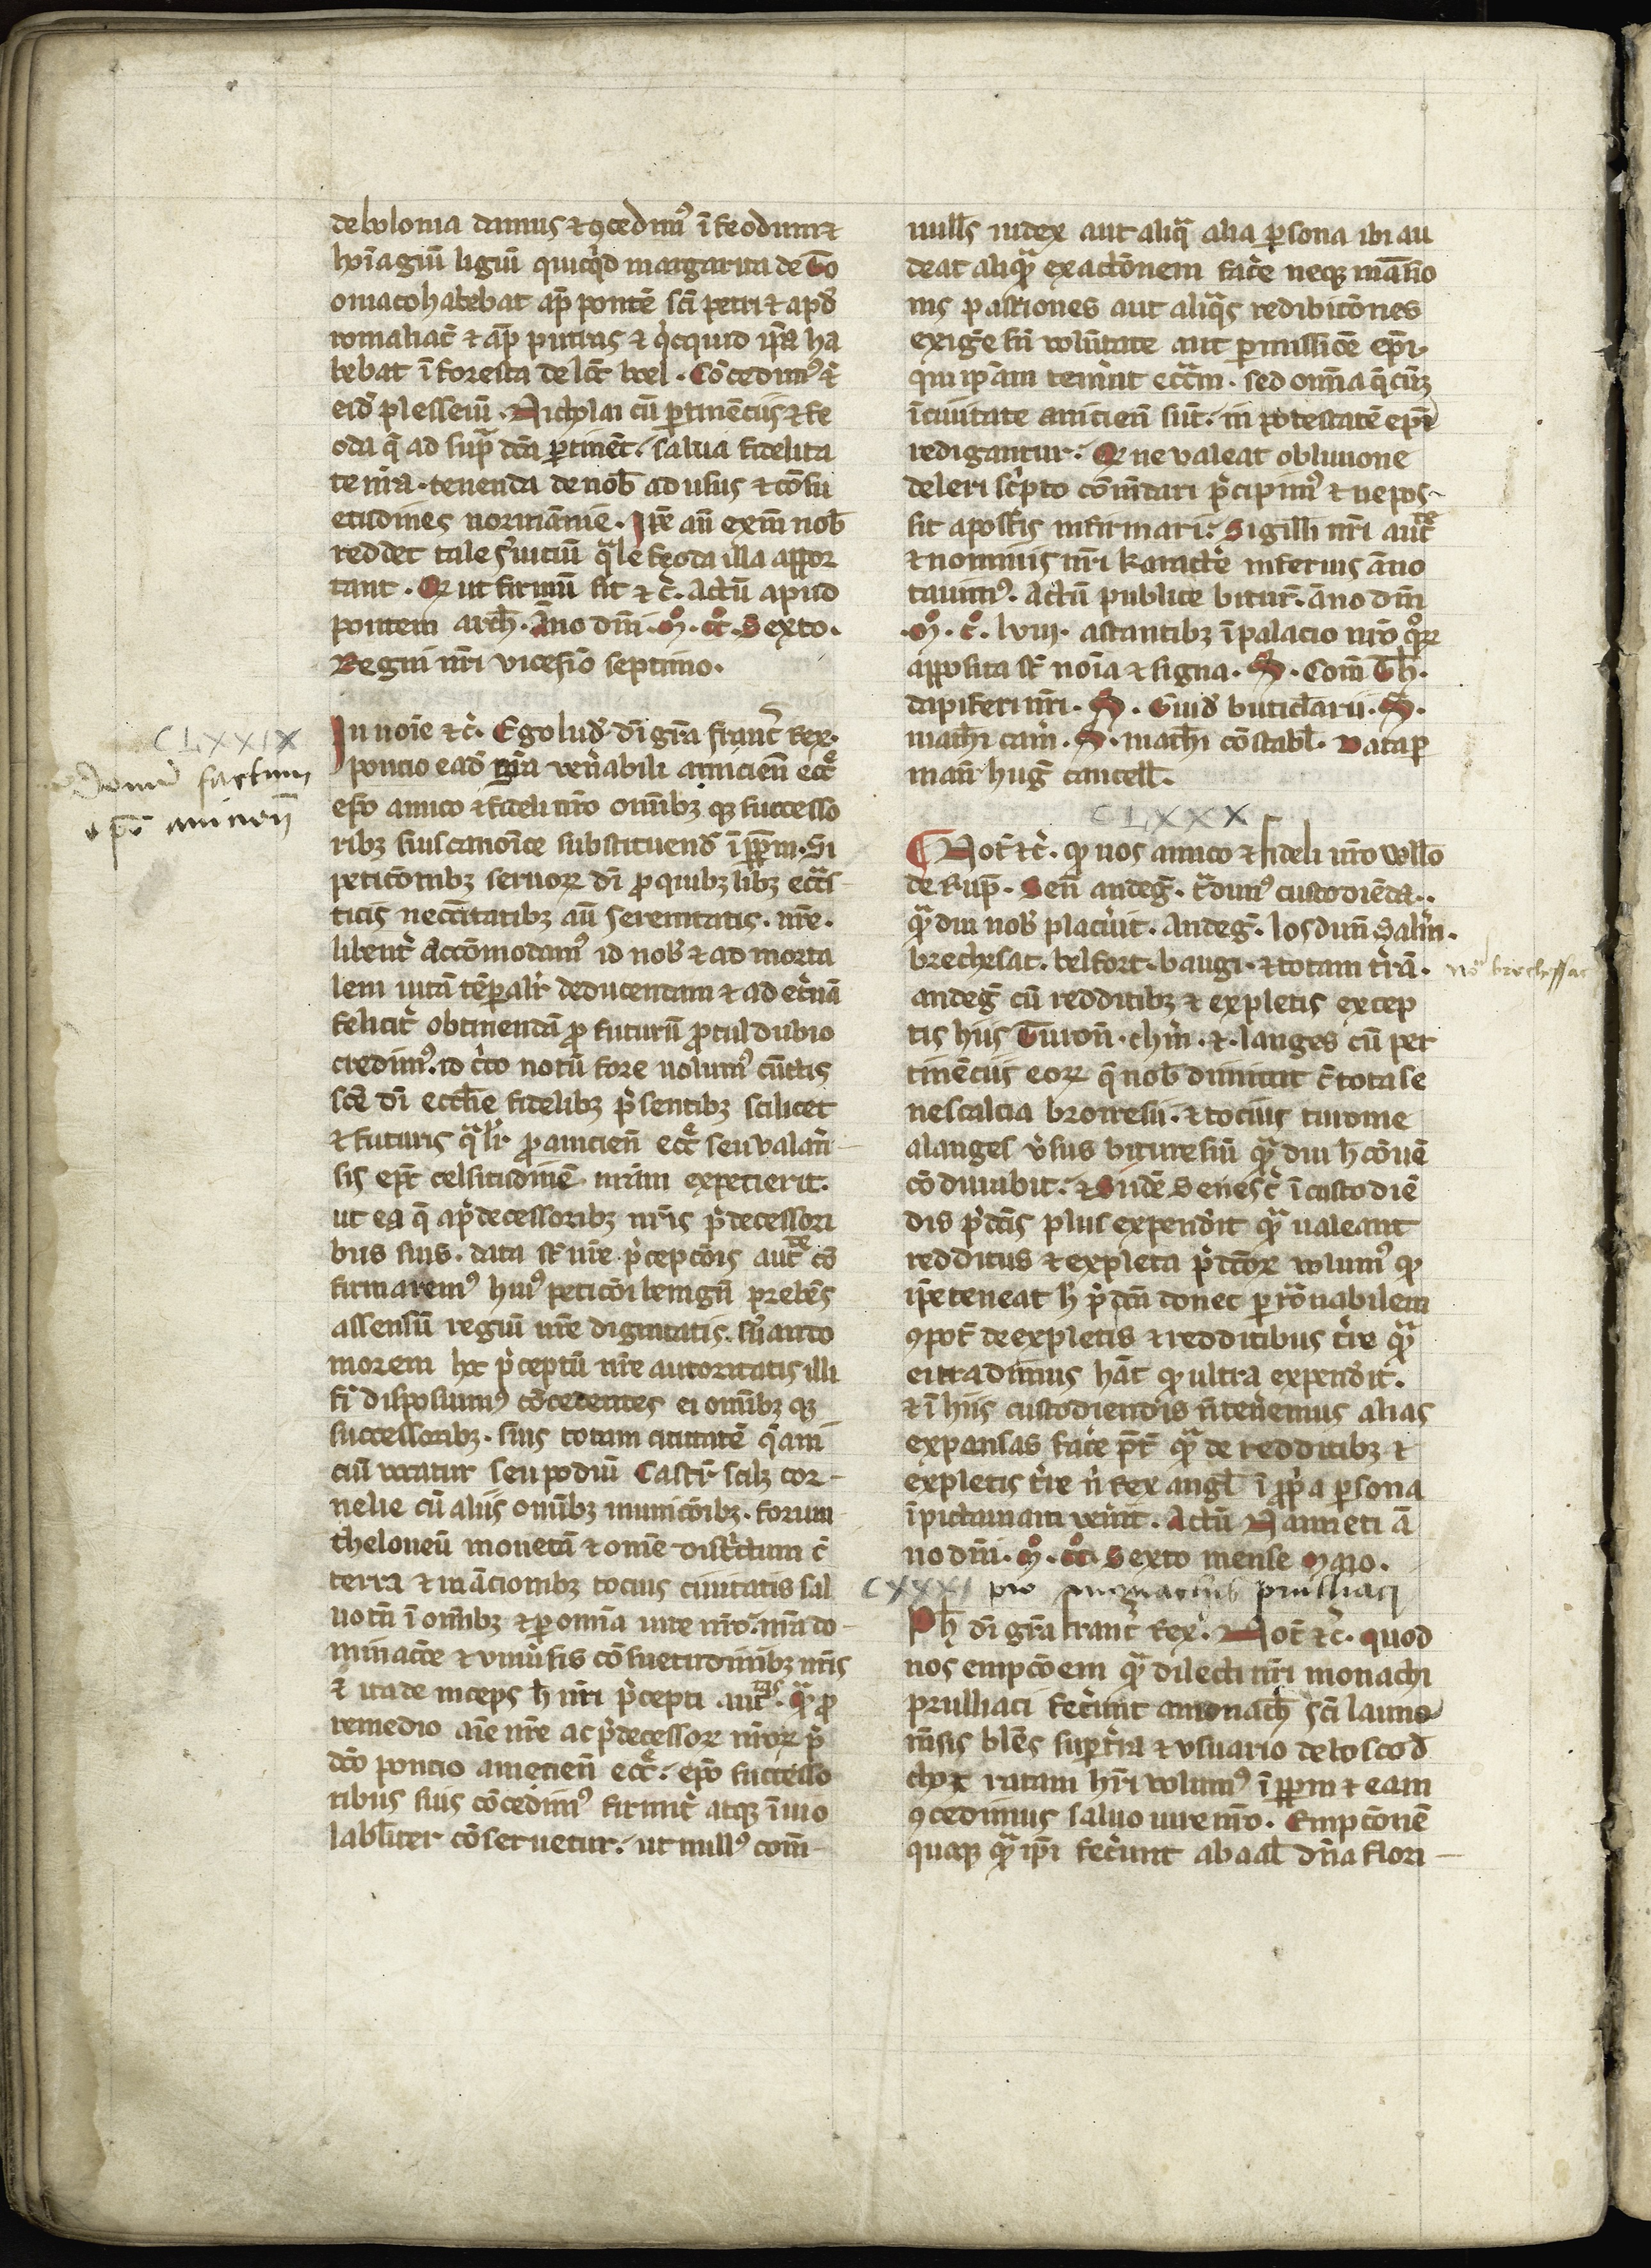 de bolonia damus ⁊ ꝯcedimꝰ ī feodum ⁊
hoīagiū ligiū quicqͥd margarita de To
omaco habebat ap̄ pontē sc̄i petri ⁊ apd̓
romaliac̄ ⁊ ap̄ putras ⁊ qͥcquid ip̄a ha
bebat ī foresta de loc̄ boel. Cōcedimꝰ ⁊
eid̓ plesseiū Nicholai cū ꝑtinēciis ⁊ fe
oda q̄ ad sup̄ dc̄a ꝑtinēt. salua fidelita
te nr̄a. tenenda de nob̓ ad usus ⁊ cōsu
etudines normānie. Ip̄e aū exin̄ nob̓
reddet tale s̓uiciū qͣle feoda illa appor
tant. Qͦ ut firmū sit ⁊ c̓. Actū apud
pontem arch̄. Āno dn̄i .Mͦ. CCͦ. Sexto.
Regni nr̄i vicesīo septimo.
CLXXIX
donū factum
ep̄o anicien̄
In noīe ⁊ c̓. Ego lud̓. dī gr̄a franc̓ Rex.
poncio ead̓ gr̄a ven̓abili anicien̄ eccͤ
ep̄o amico ⁊ fideli nr̄o omībꝫ qꝫ successo
ribꝫ suis canoīce substituend̓ ī ꝑpm̄. Si
peticōnibꝫ seruoꝝ dī ꝓ quibꝫlibꝫ ecc̄ias
ticis necc̄itatibꝫ aū serenitatis. nr̄e.
libent̓ accōmodamꝰ id nob̓ ⁊ ad morta
lem uitā tēꝑalit̓ deducendam ⁊ ad et̓nā
felicit̓ obtinendā ꝓ futurū procul dubio
credimꝰ. id c̓co notū fore uolumꝰ cūctis
sc̄e dī ecch̄ie fidelibꝫ p̓sentibꝫ scilicet
⁊ futuris qͣlit̓ ꝓ anicien̄ eccͤ seu valan̓
sis ep̄c̓ celsitudinē nr̄am expecierit.
ut ea q̄ a p̓decessoribꝫ nr̄is p̓decessori
bus suis. data st̄ nr̄e p̓cepcōis auctͭᵉ cō
firmaremꝰ huiꝰ peticōi benignū prebēs
assensū regiū nr̄e dignitatis. s̓uando
morem hoc p̓ceptū nr̄e autoritatis illi
fi̓ disposuimꝰ cōcedentes ei omībꝫ qꝫ
successoribꝫ. suis totam ciuitatē q̄ ani
ciū vocatur seu podiū Castr̄ scilꝫ cor-
nelie cū aliis omībꝫ municōibꝫ. forum
theloneū monetā ⁊ omē districtum c̄
terra ⁊ māciombꝫ tocius ciuitatis sal
uo tn̄ ī omībꝫ ⁊ ꝑ omnia iure nr̄o. nr̄a do-
minacōe ⁊ vniu̓sis cōsuetudinibꝫ nr̄is
⁊ ita de inceps h̄ nr̄i p̓cepti auctᵃˢ. qͣ ꝓ
remedio aīe nr̄e ac p̓decessoꝝ nr̄oꝝ p̓
dc̄o poncio aniecien̄ eccͤ. ep̄o successo
ribus suis cōcedimꝰ firmit̓ atqꝫ īuio
labl̄iter cōseruetur. ut nullꝰ com̄-
null̄s iudex aut aliqͣ alia ꝑsona ibi au
deat aliqͣ exactōnem fac̓e neqꝫ māsio
nis p astiones aut aliqͣs redibitōnes
exig̓e sn̄ volūtate aut ꝑmissiōe ep̄i
qui ip̄am tenu̓it ecc̄iam. sed omīa q̄cūꝫ
ī ciuitate anicien̄ sūt. in potestatē ep̄i
redigantur. Qͦ ne valeat obliuione
deleri sc̓pto cōmdari p̓cipimꝰ ⁊ ne pos-
sit a postīs infirmari. Sigilli nr̄i auctͭᵉ
⁊ nominis nr̄i karact̓e inferius āno
tauimꝰ. Actū publice bitur̄. āno dn̄i
.Mͦ. Cͦ. lviii. astantibꝫ ī palacio nr̄o qͦꝝ
apposita st̄ noīa ⁊ signa. S. Com̄ Th̄.
dapiferi nr̄i. S. Guid̓ buticlarii. S.
math̄i cam̓. S. math̄i cōstabl̄. Data ꝑ
man̄ hug̓ cancell̄.
CLXXX
Not̄ ⁊ c̓. qͥ nos amico ⁊ fideli nr̄o Will̄o
de Rup̄. Sen̄ andeg̓. tͣdimꝰ custodiēda.
qͣdiu nob̓ placu̓it. Andeg̓. losdun̄ Salm̓.
brechesac. belfort. baugi. ⁊ totam t̓rā.
nō brechessac
andeg̓ cū redditibꝫ ⁊ expletis excep
tis hiis Turon̄. chin̄. ⁊ langes cū per
tinēciis eoꝝ q̄ nob̓ dimitit c̄ tota se
nescalcia bitoresii. ⁊ tocius turonie
a langes v̓sus bituresiū qͣdiu h̄ cōuē
cō durabit. ⁊ Si id̄ē Senesc̓ ī custodiē
dis p̓dc̄is plus expend̓it qͣ ualeant
redditus ⁊ expleta p̓dc̄oꝝ volumꝰ qͥ
ip̄e teneat h̄ p̓dc̄a donec ꝑ rōnabilem
ꝯpot̄ de expletis ⁊ redditibus t̓re qͣ
ei tradimus hāt qͥ ultra expend̓it.
⁊ ī hiis custodiendis n̄ tenemus alias
expansas fac̓e p̄t̓ qͣ de redditibꝫ ⁊
expletis t̓re n̄ Rex angl̄ ī ꝓp̓a ꝑsona
ī pictauiam ven̓it. Actū Nanneti ā
no dn̄i. Mͦ. CCͦ. Sexto mense Maio.
CXXXI pro monachis prulliaci
Ph̄ dī gr̄a franc̓ Rex. Not̄ ⁊ c̓. quod
nos empcōem qͣ dilecti nr̄i monachi
prulliaci fec̓unt a monach̄ sc̄i launo
m̄sis blēs sup̄ t̓ra ⁊ vsuario de bosco d̓
choꝫ ratam hr̄i volumꝰ ī ꝑpm̄ ⁊ eam
ꝯcedimus saluo iure nr̄o. Empcōnē
quoqꝫ qͣ ip̄i fec̓unt ab aal̄ dn̄a flori-